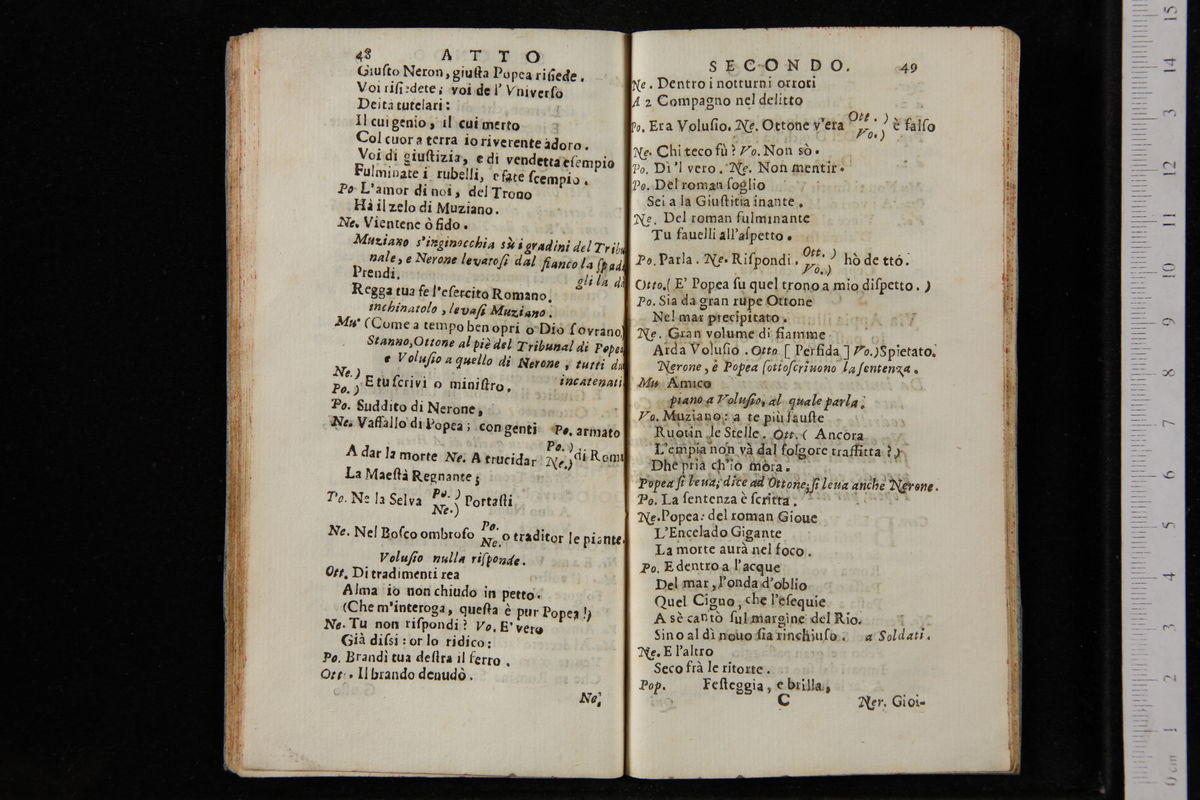 48 ATTO
Giuſto Neron, giuſta Popea riſiede.
Voi riſiedete; voi de l' Vniverſo
Deità tutelari:
Il cui genio, il cui merto
Col cuor a terra io riverente adoro.
Voi di giuſtizia, e di vendetta eſempio
Fulminate i rubelli, e fate ſcempio.
Po L'amor di noi, del Trono
Hà il zelo di Muziano.
Ne. Vientene ò fido.
Muziano s'inginocchia sù i gradini del Tribu
nale, e Nerone levatoſi dal fianco la ſpada
gli la dà
Prendi.
Regga tua fe l'eſercito Romano.
inchinatolo, levaſi Muziano.
Mu. (Come a tempo ben opri o Dio ſovrano)
Stanno, Ottone al piè del Tribunal di Popea
e Voluſio a quello di Nerone, tutti du
incatenati
Ne.)
Po.) E tu ſcrivi o miniſtro.
Po. Suddito di Nerone,
Ne. Vaſſallo di Popea; con genti Po. armato
A dar la morte Ne. A trucidar Po.) Ne.) di Roma
La Maeſtà Regnante;
Po. Ne la Selva Po.) Ne.) Portaſti
Ne. Nel Boſco ombroſo Po. Ne. o traditor le piante.
Voluſio nulla riſponde.
Ott. Di tradimenti rea
Alma io non chiudo in petto.
(Che m'interoga, queſta è pur Popea!)
Ne. Tu non riſpondi? Vo. E' vero
Già diſsi: or lo ridico:
Po. Brandì tua deſtra il ferro.
Ott. Il brando denudò.
Ne.
SECONDO. 49
Ne. Dentro i notturni orrori
A 2 Compagno nel delitto
Po. Era Voluſio. Ne. Ottone v'era Ott.) Vo.) è falſo
Ne. Chi teco fù? Vo. Non sò.
Po. Di 'l vero. Ne. Non mentir.
Po. Del roman ſoglio
Sei a la Giuſtitia inante.
Ne. Del roman fulminante
Tu fauelli all'aſpetto.
Po. Parla. Ne. Riſpondi. Ott.) Vo.) hò detto.
Otto. (E' Popea ſu quel trono a mio diſpetto.)
Po. Sia da gran rupe Ottone
Nel mar precipitato.
Ne. Gran volume di fiamme
Arda Voluſio. Otto [Perfida] Vo.) Spietato.
Nerone, è Popea ſottoſcriuono la ſentenza.
Mu Amico
piano a Voluſio, al quale parla.
Vo. Muziano: a te più fauſte
Ruotin le Stelle. Ott. ( Ancora
L'empia non và dal folgore traffitta?)
Dhe pria ch'io mora.
Popea ſi leua; dice ad Ottone; ſi leua anche Nerone.
Po. La ſentenza è ſcritta.
Ne. Popea: del roman Gioue
L'Encelado Gigante
La morte aurà nel foco.
Po. E dentro a l'acque
Del mar, l'onda d'oblio
Quel Cigno, che l'eſequie
A sè cantò ſul margine del Rio.
Sino al dì nouo ſia rinchiuſo. a Soldati.
Ne. E l'altro
Seco frà le ritorte.
Pop. Feſteggia, e brilla,
C Ner. Gioi-